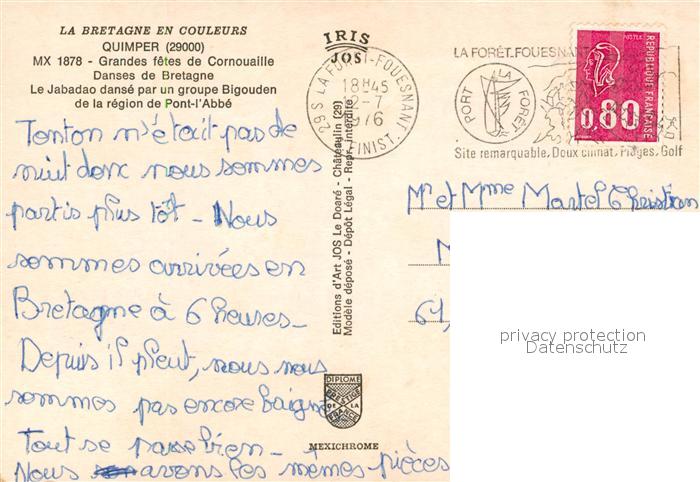 LA BRETAGNE EN COULEURS
QUIMPER (29000)
MX 1878 - Grandes fêtes de Cornouaille
Danses de Bretagne
Le Jabadao dansé par un groupe Bigouden
de la région de Pont-l'Abbé
Tonton n'était pas de
nuit donc nous sommes
partis plus tôt - Nous
sommes arrivées en
Bretagne à 6 heures -
Depuis il pleut, nous nous
sommes pas encore baigné
Tout se passe bien -
Nous avons les mêmes pièces
IRIS
JOS
Editions d'Art JOS Le Doaré - Châteaulin (29)
Modèle déposé - Dépôt Légal - Repr. interdite
DIPLOME
PRESTIGE
DE LA
FRANCE
MEXICHROME
29 S LA FORÊT-FOUESNANT
18H45
2-7
1976
FINIST.
LA FORÊT-FOUESNANT
PORT LA FORÊT
Site remarquable. Doux climat. Plages. Golf
POSTES
REPUBLIQUE FRANÇAISE
0,80
Mr et Mme Martel Christian
privacy protection
Datenschutz